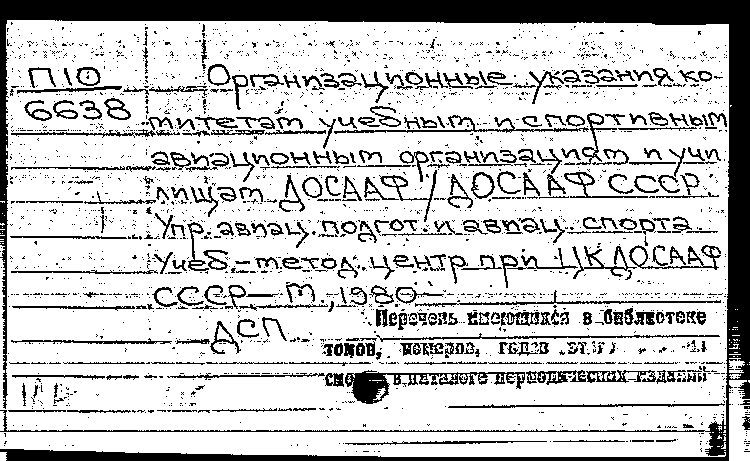 П10
6638
Организационные указания ко-
митетам учебным и спортивным
авиационным организациям и учи
лищам ДОСААФ / ДОСААФ СССР.
Упр. авиац. подгот. и авиац. спорта
Учеб.-метод. центр при ЦК ДОСААФ
СССР – М., 1980 –
ДСП
Перечень имеющихся в библиотеке
томов, номеров, годов
в каталоге периодических изданий